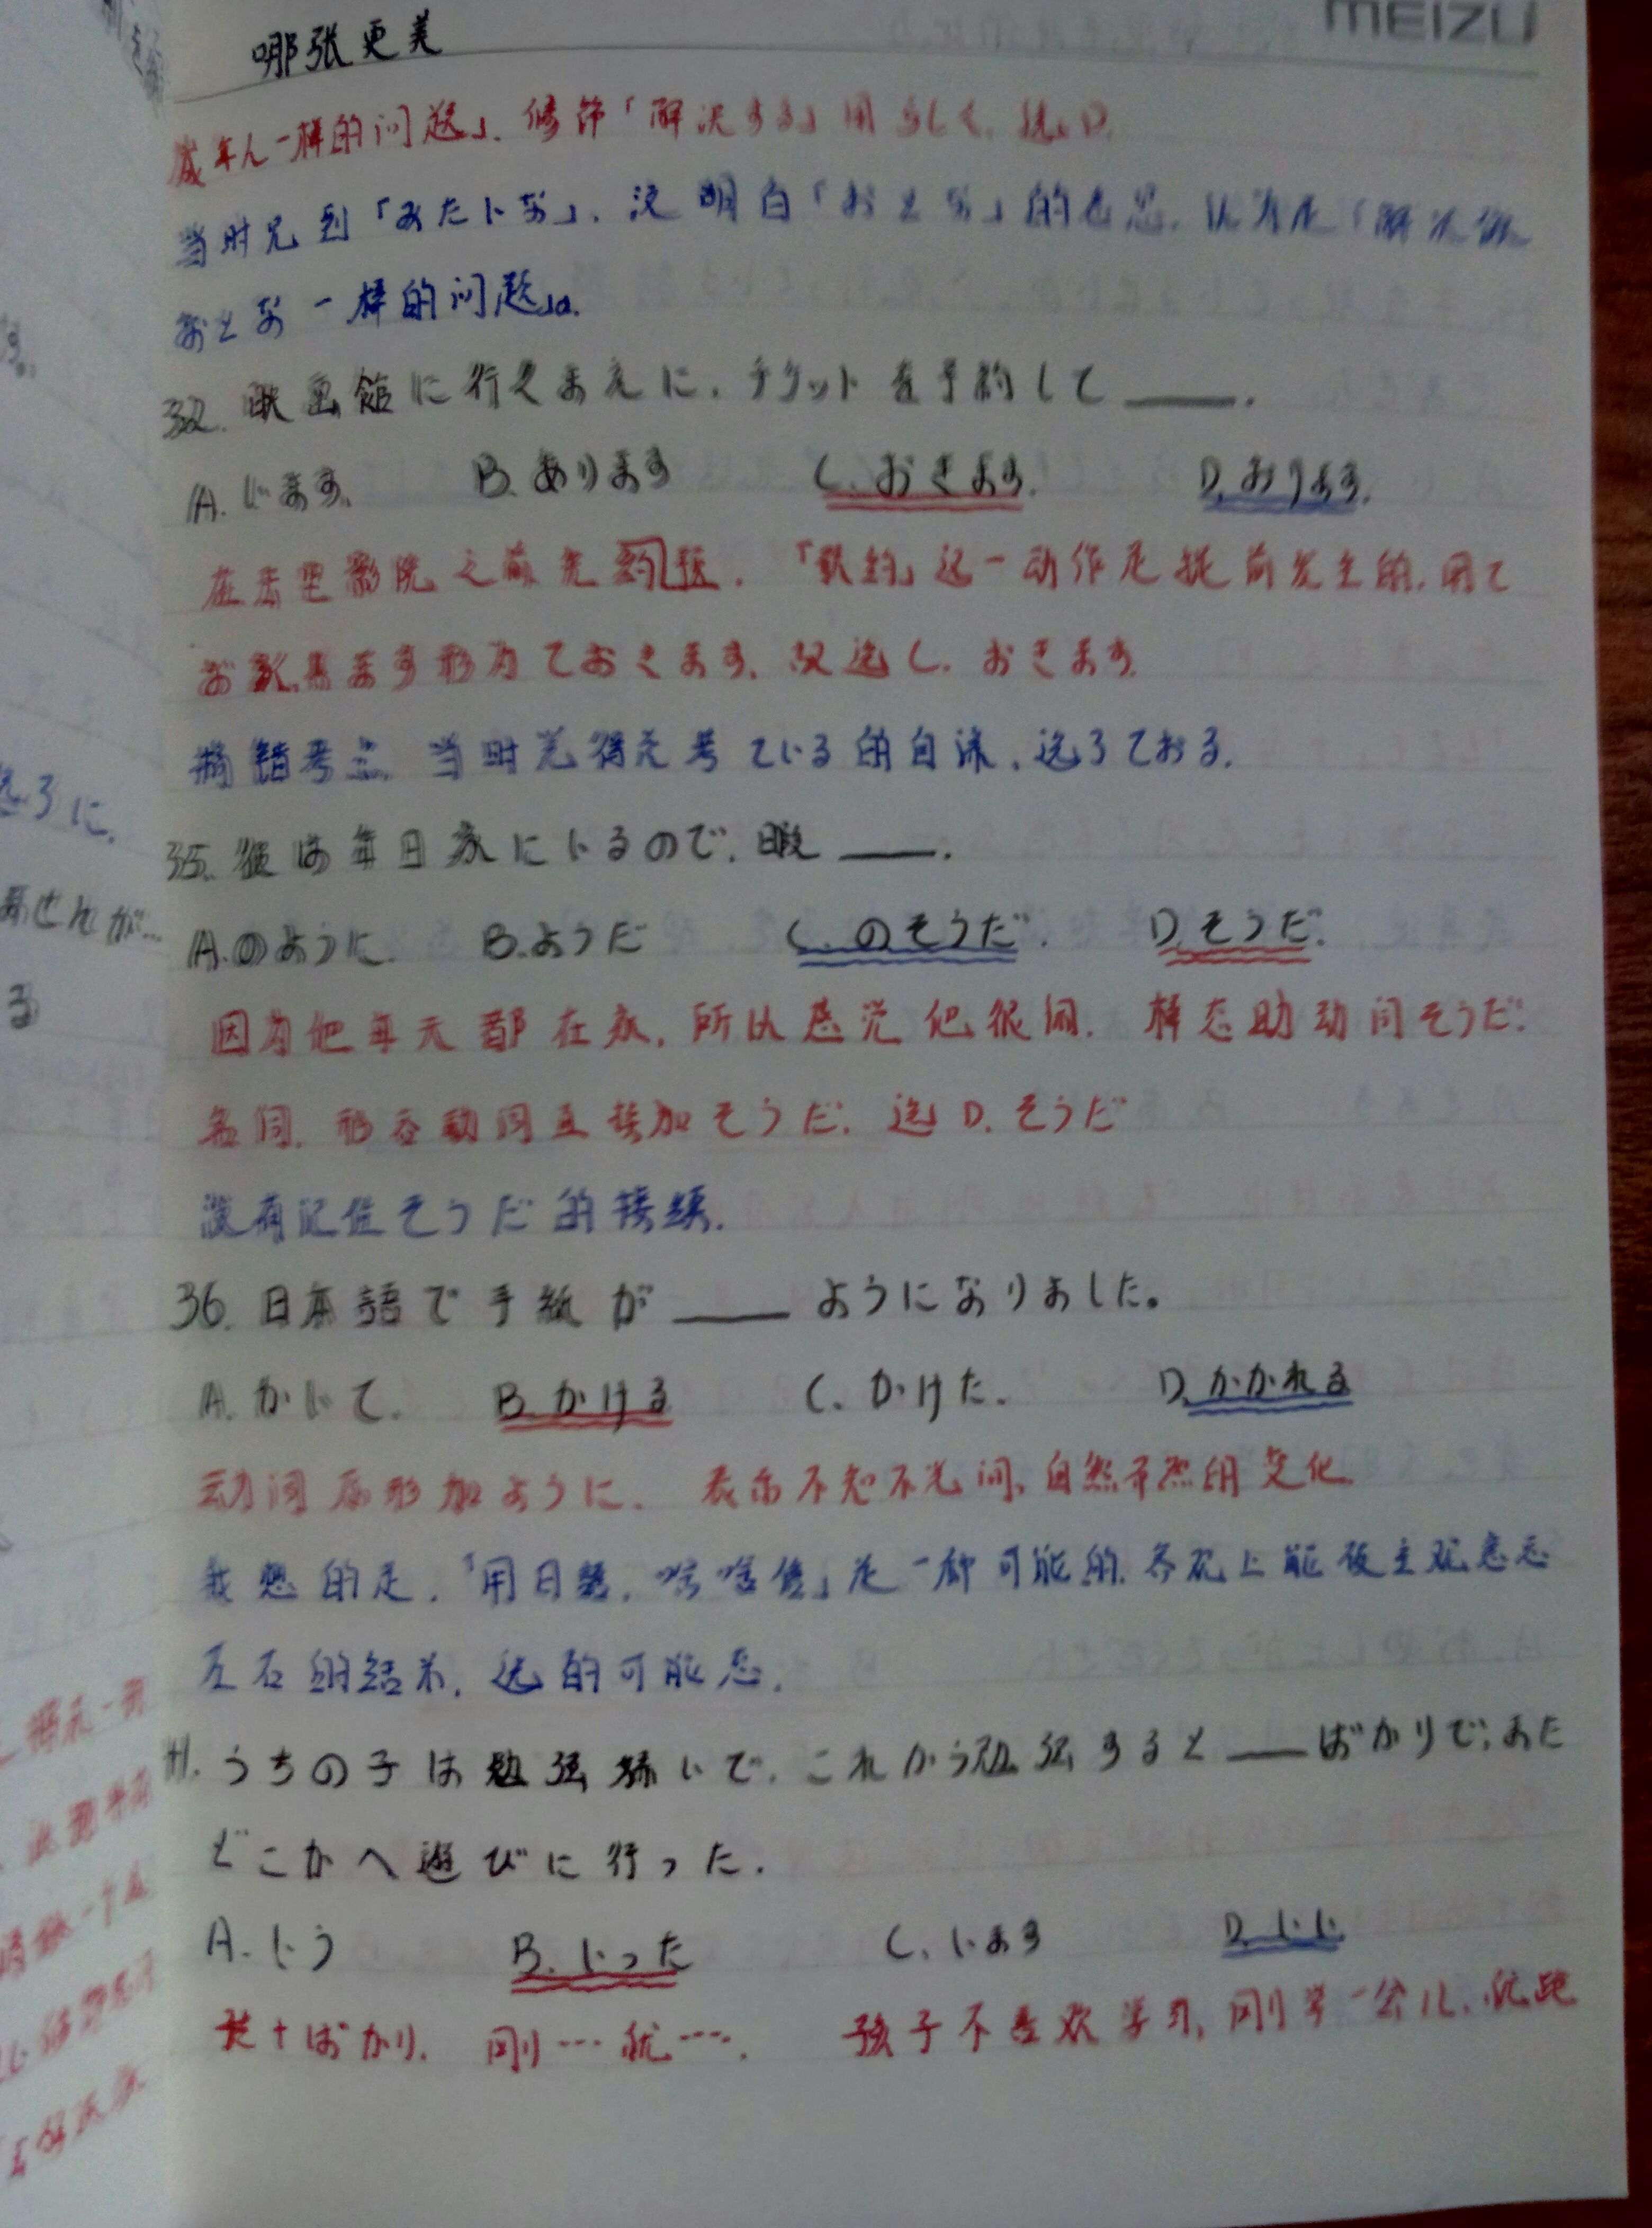 MEIZU
哪张更美
成年人一样的问题」、修饰「解决する」用 选D.
当时见到「みたいな」、没明白「おとな」的意思、认为是「解决像
おとな一样的问题」。
32. 映画館に行くまえに、チケットを予約して____.
A. います. B. あります C. おきます. D. おります.
在去电影院之前先约票. 「予約」这一动作是提前发生的, 用て
ます形为ておきます, 故选C. おきます.
搞错考点. 当时觉得是考ている的自谦, 选了ておる.
35. 彼は毎日家にいるので, 暇____.
A. のように. B. ようだ C. のそうだ. D. そうだ.
因为他每天都在家, 所以感觉他很闲. 样态助动词そうだ.
名词. 形容动词直接加そうだ. 选D. そうだ
没有记住そうだ的接续.
36. 日本語で手紙が____ようになりました。
A. かいて. B. かける C. かけた. D. かかれる
动词原形加ように. 表示不知不觉间, 自然而然的变化
我想的是, 「用日语, 信」是一种可能的, 客观上能被主观意志
左右的结果, 选的可能态.
41. うちの子は勉強嫌いで, これから勉強すると____ばかりで, また
どこかへ遊びに行った.
A. いう B. いった C. います D. いい
た+ばかり. 刚…就…. 孩子不喜欢学习, 刚学一会儿, 就跑
选了に.
ませんが…
る